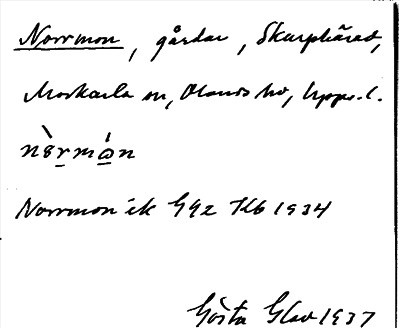 Norrmon, gårdar, Skarphärad,
Morkarla sn, Olands hd, Upps. l.
nòrmón
Norrmon ek G92 Kb 1934
Gösta Glav 1937